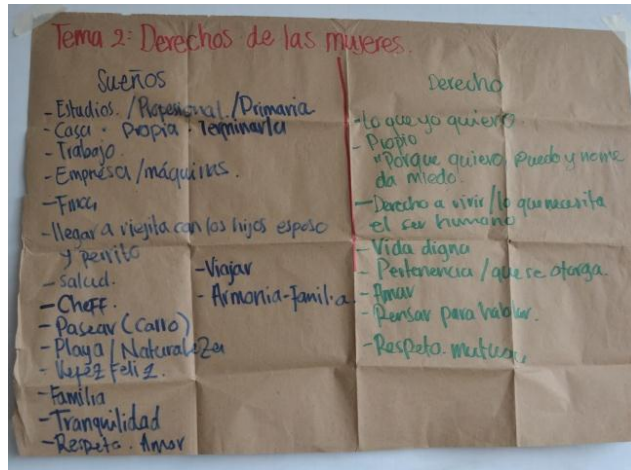 Tema 2: Derechos de las mujeres.
Sueños
- Estudios. / Profesional / Primaria
- Casa • Propia • Terminarla
- Trabajo.
- Empresa / máquinas.
- Finca
- llegar a viejita con los hijos esposo
y perrito
- Salud.
- Cheff.
- Pasear (Carro)
- Playa / Naturaleza
- Vejez Feliz.
- Familia
- Tranquilidad
- Respeto. Amor
- Viajar
- Armonia-Familia.
Derecho
- Lo que yo quiero
- Propio
"Porque quiero, puedo y no me
da miedo.
- Derecho a vivir / lo que necesita
el ser humano
- Vida digna
- Pertenencia / que se otorga.
- Amar
- Pensar para hablar.
- Respeto. mutuo